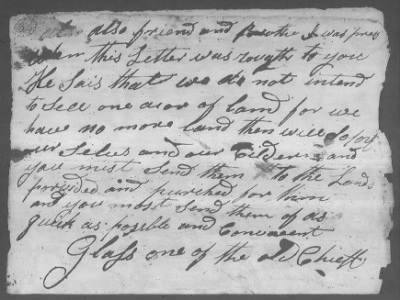 also friend and Brother I was pres
when this Letter was rought to you
He Sais that we do not intend
to sell one acor of land for we
have no more land then will Soport
our Selves and our Cildern and
you mist Send them to the Land
provided and purched for him
and you most Send them of as
quick as posible and Convenent
Glass one of the old Chieff